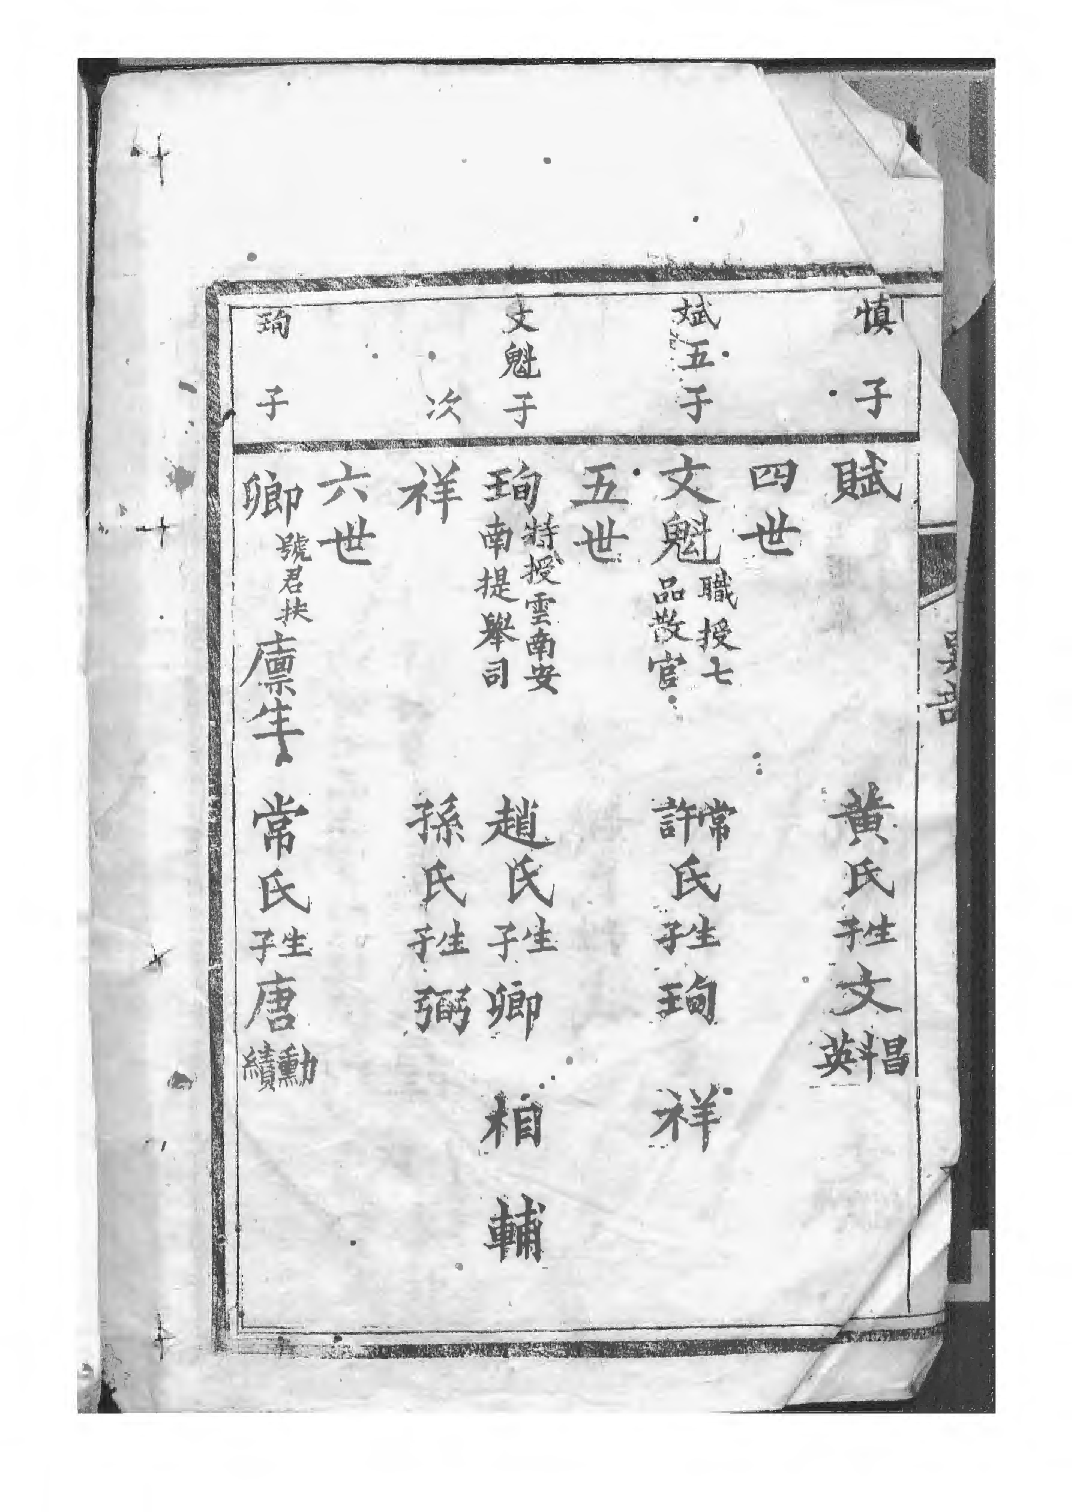 慎子 賦 黃氏 生子 文 昌 斗 英
四世
斌五子 文魁 職授七品散官 常許氏 生子 珣 祥
五世
文魁子 珣 特授雲南安南提舉司 趙氏 生子 卿 相 輔
次 祥 孫氏 生子 弼
六世
珣子 卿 號君扶 廩生 常氏 生子 唐 勳 績